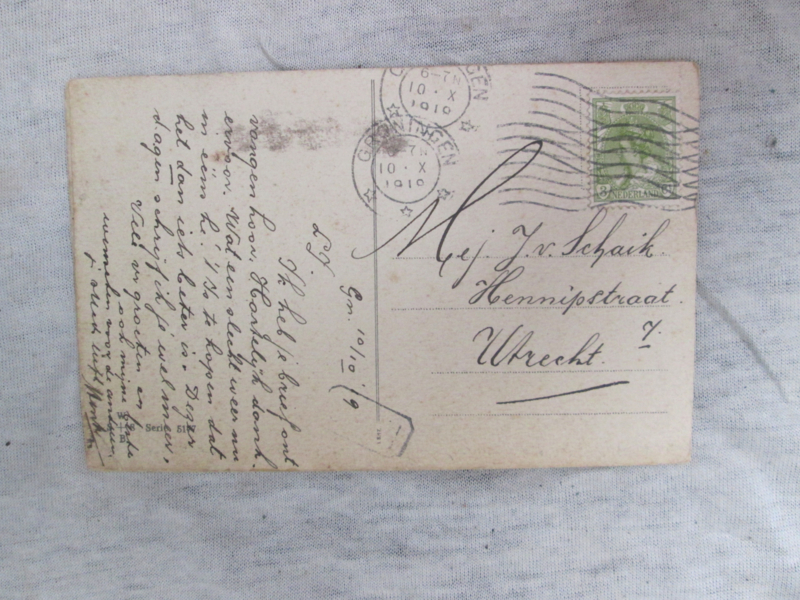 GRONINGEN
6-7N
10·X
1919
GRONINGEN
7N
10·X
1919
3 NEDERLAND
Mej. J. v. Schaik.
Hennipstraat.
7.
Utrecht.
Gn. 10/10 '19
L. J.
Ik heb je brief ont
vangen hoor. Hartelijk dank
ervoor. Wat een slecht weer nu
in eens hè! 't Is te hopen dat
het dan iets beter is. Deger
dagen schrijf ik je wel meer,
Veel v. groeten en
ook mijne beste
wenschen voor de anderen
Serie 51